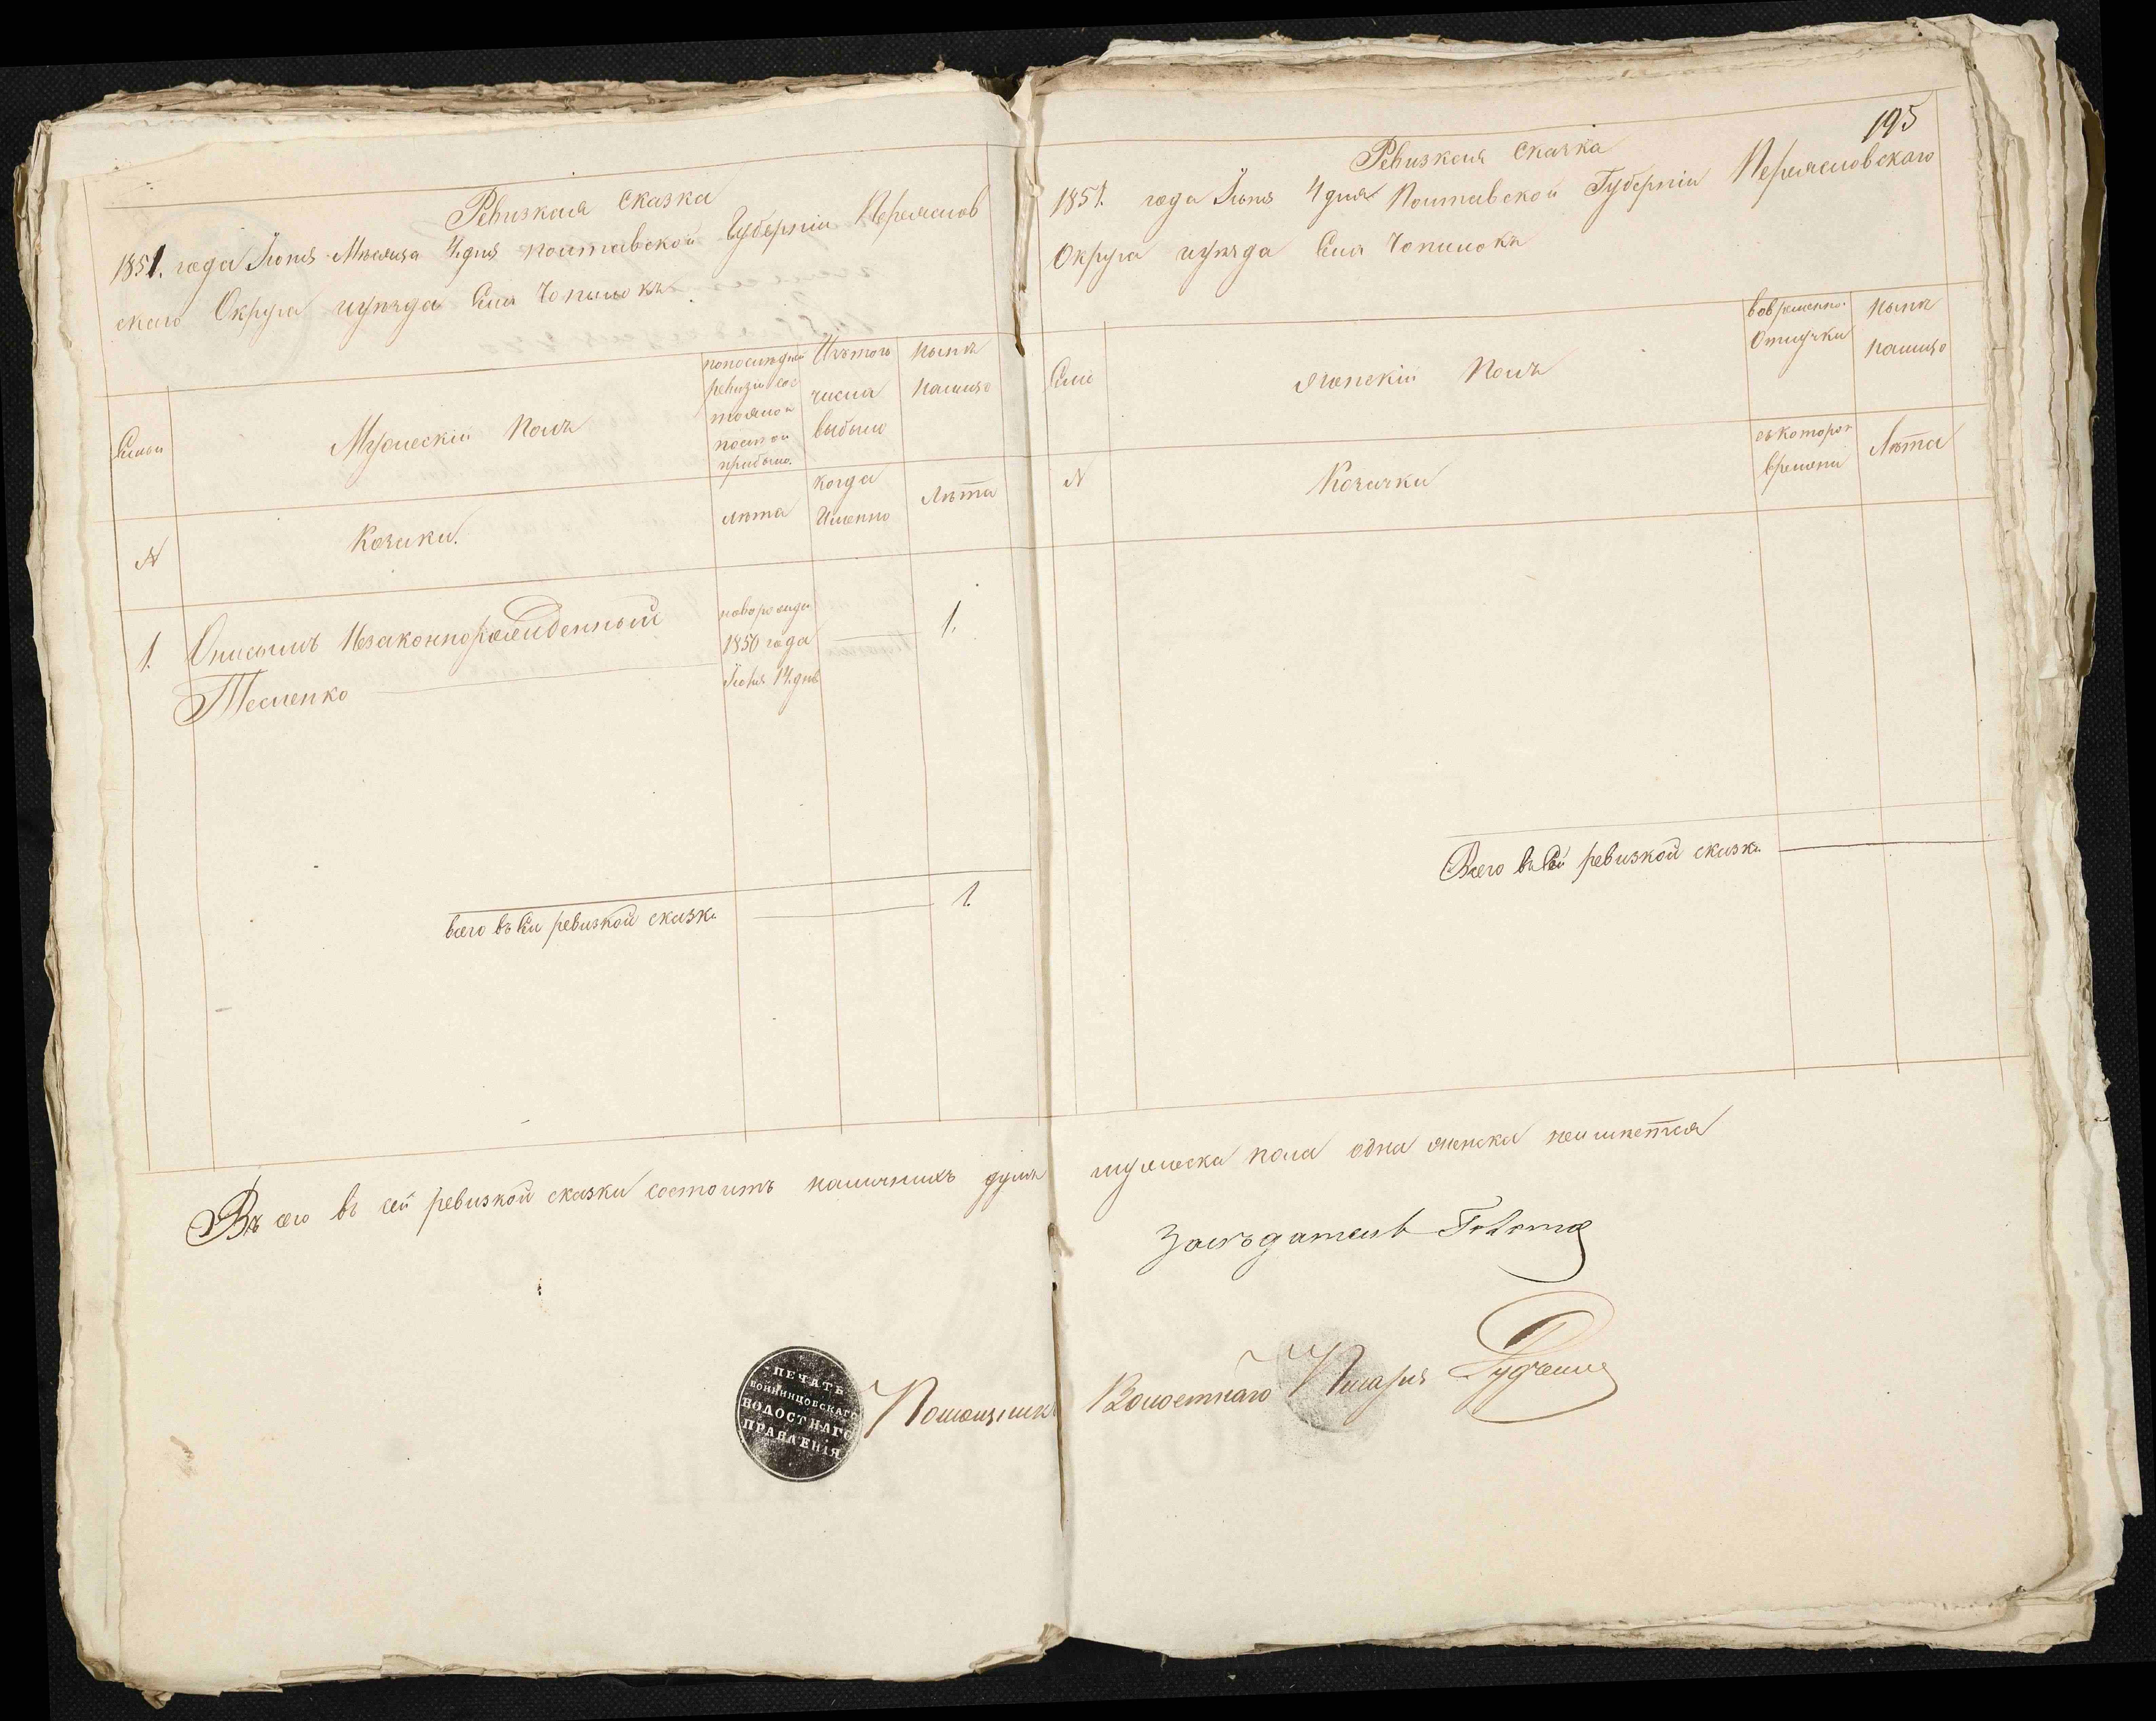 Ревизкая Сказка
1851. года Іюня Мѣсяца 4 дня полтавской Губерніи Переяслов
скаго Округа иуѣзда Села Чопилокъ
Семьи
Мужескій Полъ
попоследней
ревизіи сос
тояло и
послѣ ой
прибыло.
Изътого
числа
выбыло
ныне
налицо
N
Козаки.
лѣта
Когда
Именно
Лѣта
1. Онисимъ Незаконнорожденный
Тесленко
новорожде
1850 года
Іюня 14 дня
1.
всего въ сей ревизкой сказке 1.
195
Ревизкая Сказка
1851. года Іюня 4 дня Полтавской Губерніи Переясловскаго
Округа иуѣзда Села Чопилокъ
Семьи
Женскій Полъ
вовременно.
Отлучки
ныне
налицо
N
Козачки
съкоторого
времени
Лѣта
Всего въ сей ревизкой сказке
Въ сего въ сей ревизкой сказки состоитъ наличнихъ душъ мужеска пола одна женска неимѣется
Засѣдатель
ПЕЧАТЬ
ВОЙНИНЦОВСКАГО
ВОЛОСТНАГО
ПРАВЛЕНІЯ
Помощникъ Волостнаго Писаря